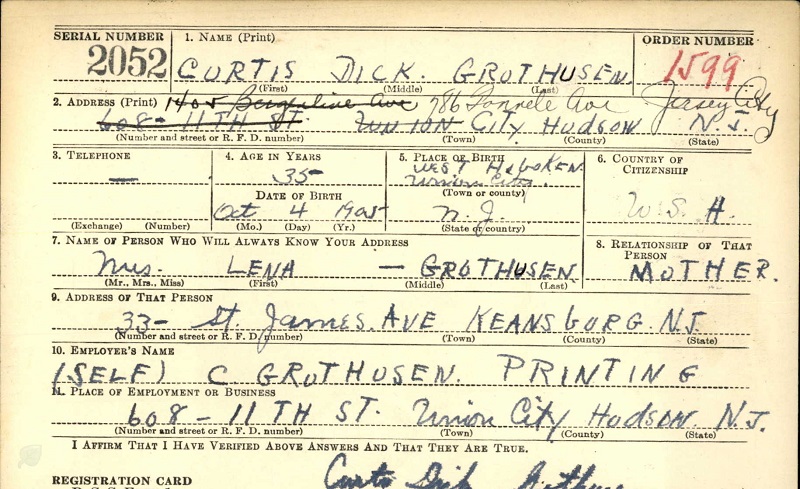 SERIAL NUMBER 1. NAME (Print) ORDER NUMBER
2052 CURTIS DICK. GROTHUSEN. 1599
(First) (Middle) (Last)
2. ADDRESS (Print) 1405 Bergenline Ave 786 Tonnele Ave Jersey City
608- 11TH ST. UNION CITY HUDSON N.J.
(Number and street or R. F. D. number) (Town) (County) (State)
3. TELEPHONE 4. AGE IN YEARS 5. PLACE OF BIRTH 6. COUNTRY OF CITIZENSHIP
— 35 WEST HOBOKEN
Union City.
DATE OF BIRTH (Town or county)
Oct 4 1905 N.J. U.S.A.
(Exchange) (Number) (Mo.) (Day) (Yr.) (State or country)
7. NAME OF PERSON WHO WILL ALWAYS KNOW YOUR ADDRESS 8. RELATIONSHIP OF THAT PERSON
Mrs. LENA — GROTHUSEN MOTHER.
(Mr., Mrs., Miss) (First) (Middle) (Last)
9. ADDRESS OF THAT PERSON
33- St James. AVE KEANSBURG. NJ
(Number and street or R. F. D. number) (Town) (County) (State)
10. EMPLOYER'S NAME
(SELF) C GROTHUSEN. PRINTING
11. PLACE OF EMPLOYMENT OR BUSINESS
608 - 11TH ST. Union City Hudson. N.J.
(Number and street or R. F. D. number) (Town) (County) (State)
I AFFIRM THAT I HAVE VERIFIED ABOVE ANSWERS AND THAT THEY ARE TRUE.
REGISTRATION CARD Curtis Dick